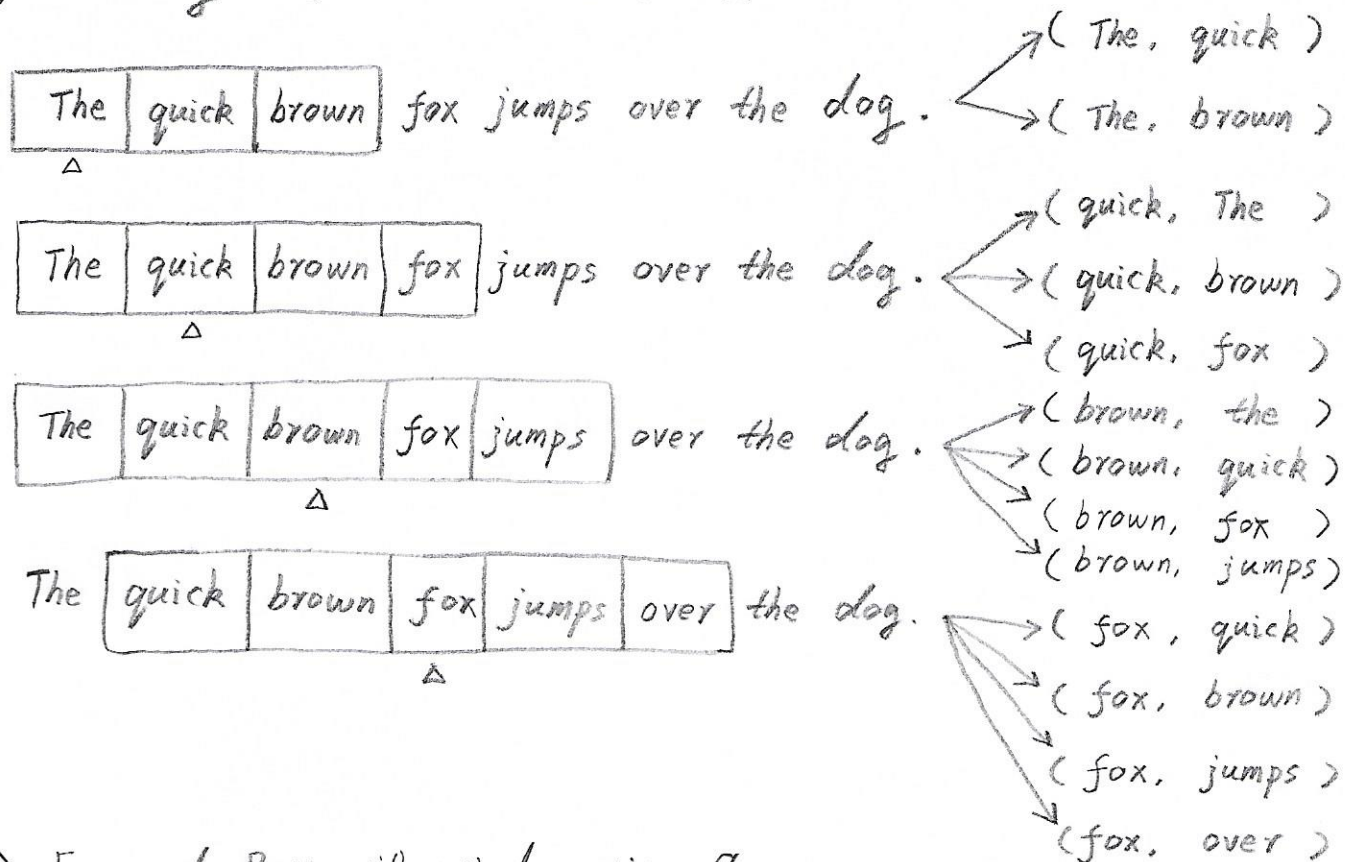 ( The, quick )
The quick brown fox jumps over the dog.
( The, brown )
( quick, The )
The quick brown fox jumps over the dog.
( quick, brown )
( quick, fox )
( brown, the )
The quick brown fox jumps over the dog.
( brown, quick )
( brown, fox )
( brown, jumps )
The quick brown fox jumps over the dog.
( fox, quick )
( fox, brown )
( fox, jumps )
( fox, over )